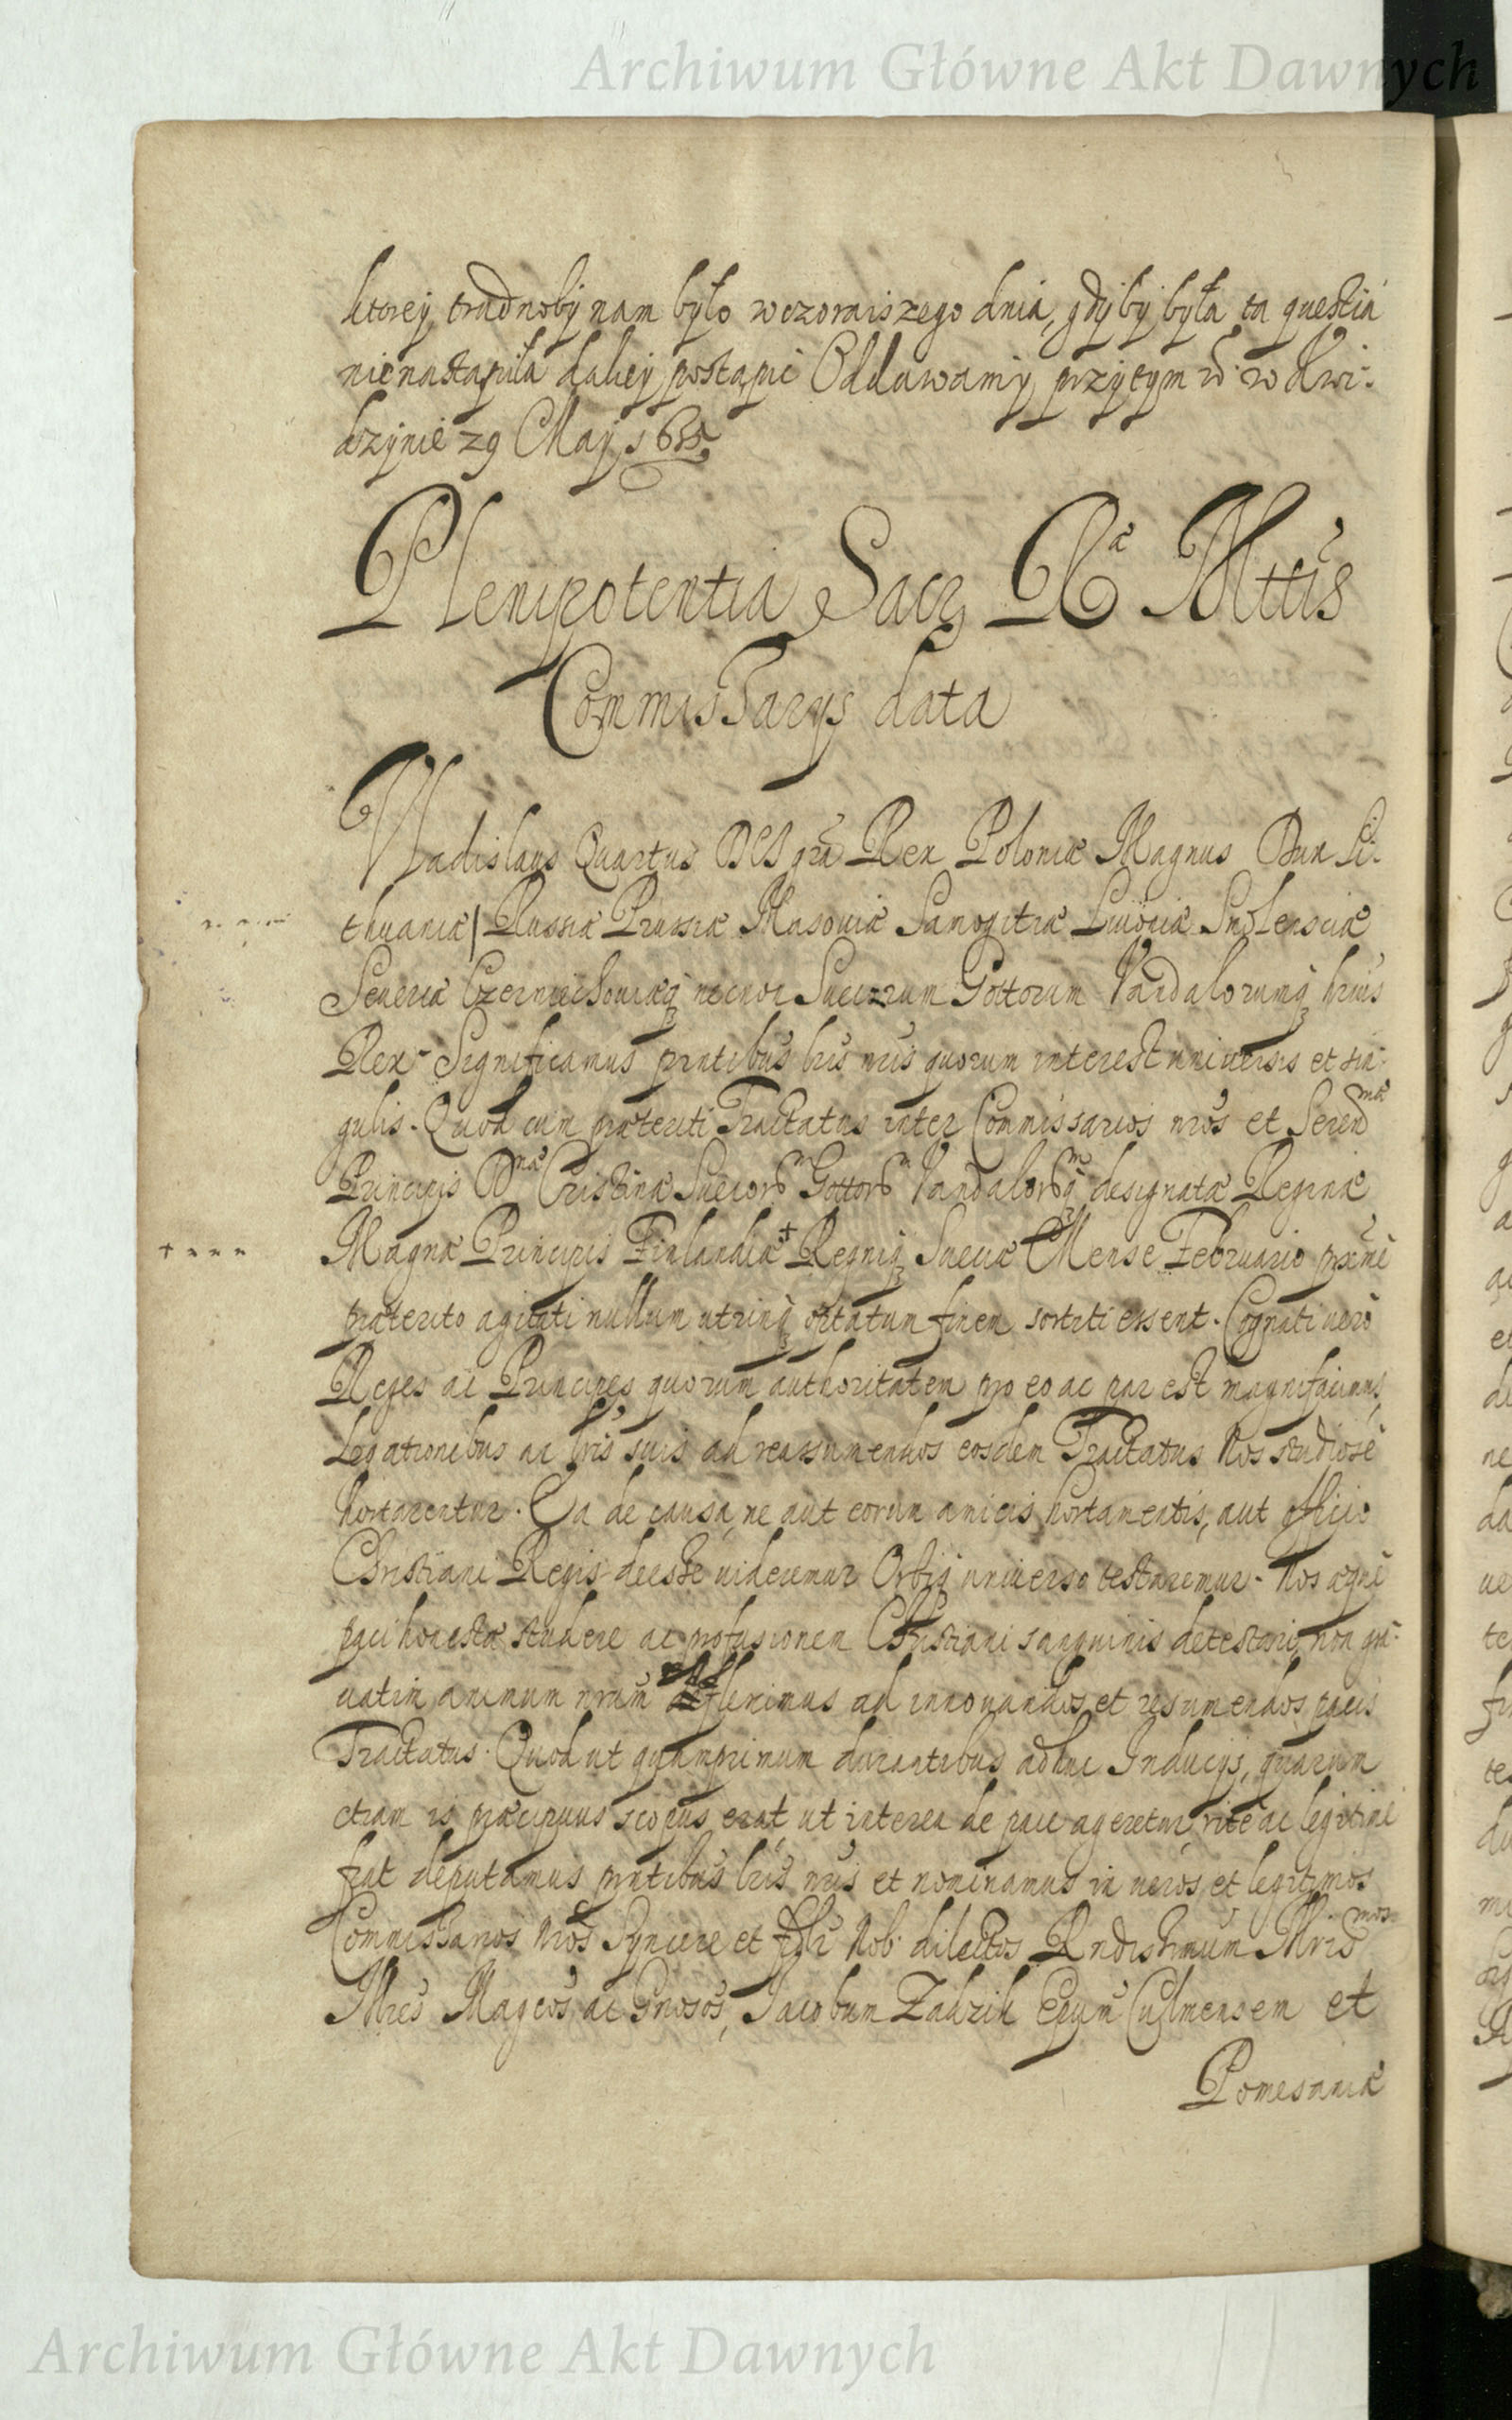 Archiwum Główne Akt Dawnych
ktorey trudnoby nam było wczoraiszego dnia, gdyby była ta questia
nienastąpiła daley postąpić Oddawamy przytym w Kwi-
dzynie 29 Maij 1635
Plenipotentia Sacræ Rᵃ Mttis
Commissarys data
Vladislaus Quartus DEI gra Rex Poloniæ Magnus Dux Li-
thuaniæ | Russiæ Prussiæ Masoviæ Samogitiæ Livoniæ Smolensciæ
Severiæ Czerniechoviæq necnon Suecorum Gottorum Vandalorumq hrius
Rex - Significamus pntibus lris nris quorum interest universis et sin-
gulis. Quod cum præteriti Tractatus inter Commissarios nros et Serenᵐᵃᵉ
Principis Dⁿᵃᵉ Cristinæ Suecorᵐ Gottorᵐ Vandalorᵐq designatæ Reginæ
Magnæ Principis Finlandiæ + Regniq Sueciæ Mense Februario proxime
præterito agitati nullum utrinq optatum finem sortiti essent. Cognati vero
Reges ac Principes quorum authoritatem pro eo ac par est magnifacimus,
Legationibus ac lris suis ad reassumendos eosdem Tractatus Nos studiose
hortarentur. Ea de causa, ne aut eorum amicis hortamentis, aut officio
Christiani Regis deesse videremur Orbiq universo testaremur. Nos æque
paci honestæ studere ac profusionem Christiani sanguinis detestari, non gra-
vatim animum nrum defleximus ad innovandos et resumendos pacis
Tractatus. Quod ut quamprimum durantibus adhuc Inducijs, quarum
etiam is præcipuus scopus erat ut interea de pace ageretur, rite ac legitime
fiat deputamus pntibus lris nris et nominamus in veros et legitimos
Commissarios Nros Syncere et flr Nob. dilectos Rndissimum Illrisᵐᵒˢ
Illres Magcos ac Gnosos, Jacobum Zadzik Epum Culmensem et
Pomesaniæ
Archiwum Główne Akt Dawnych